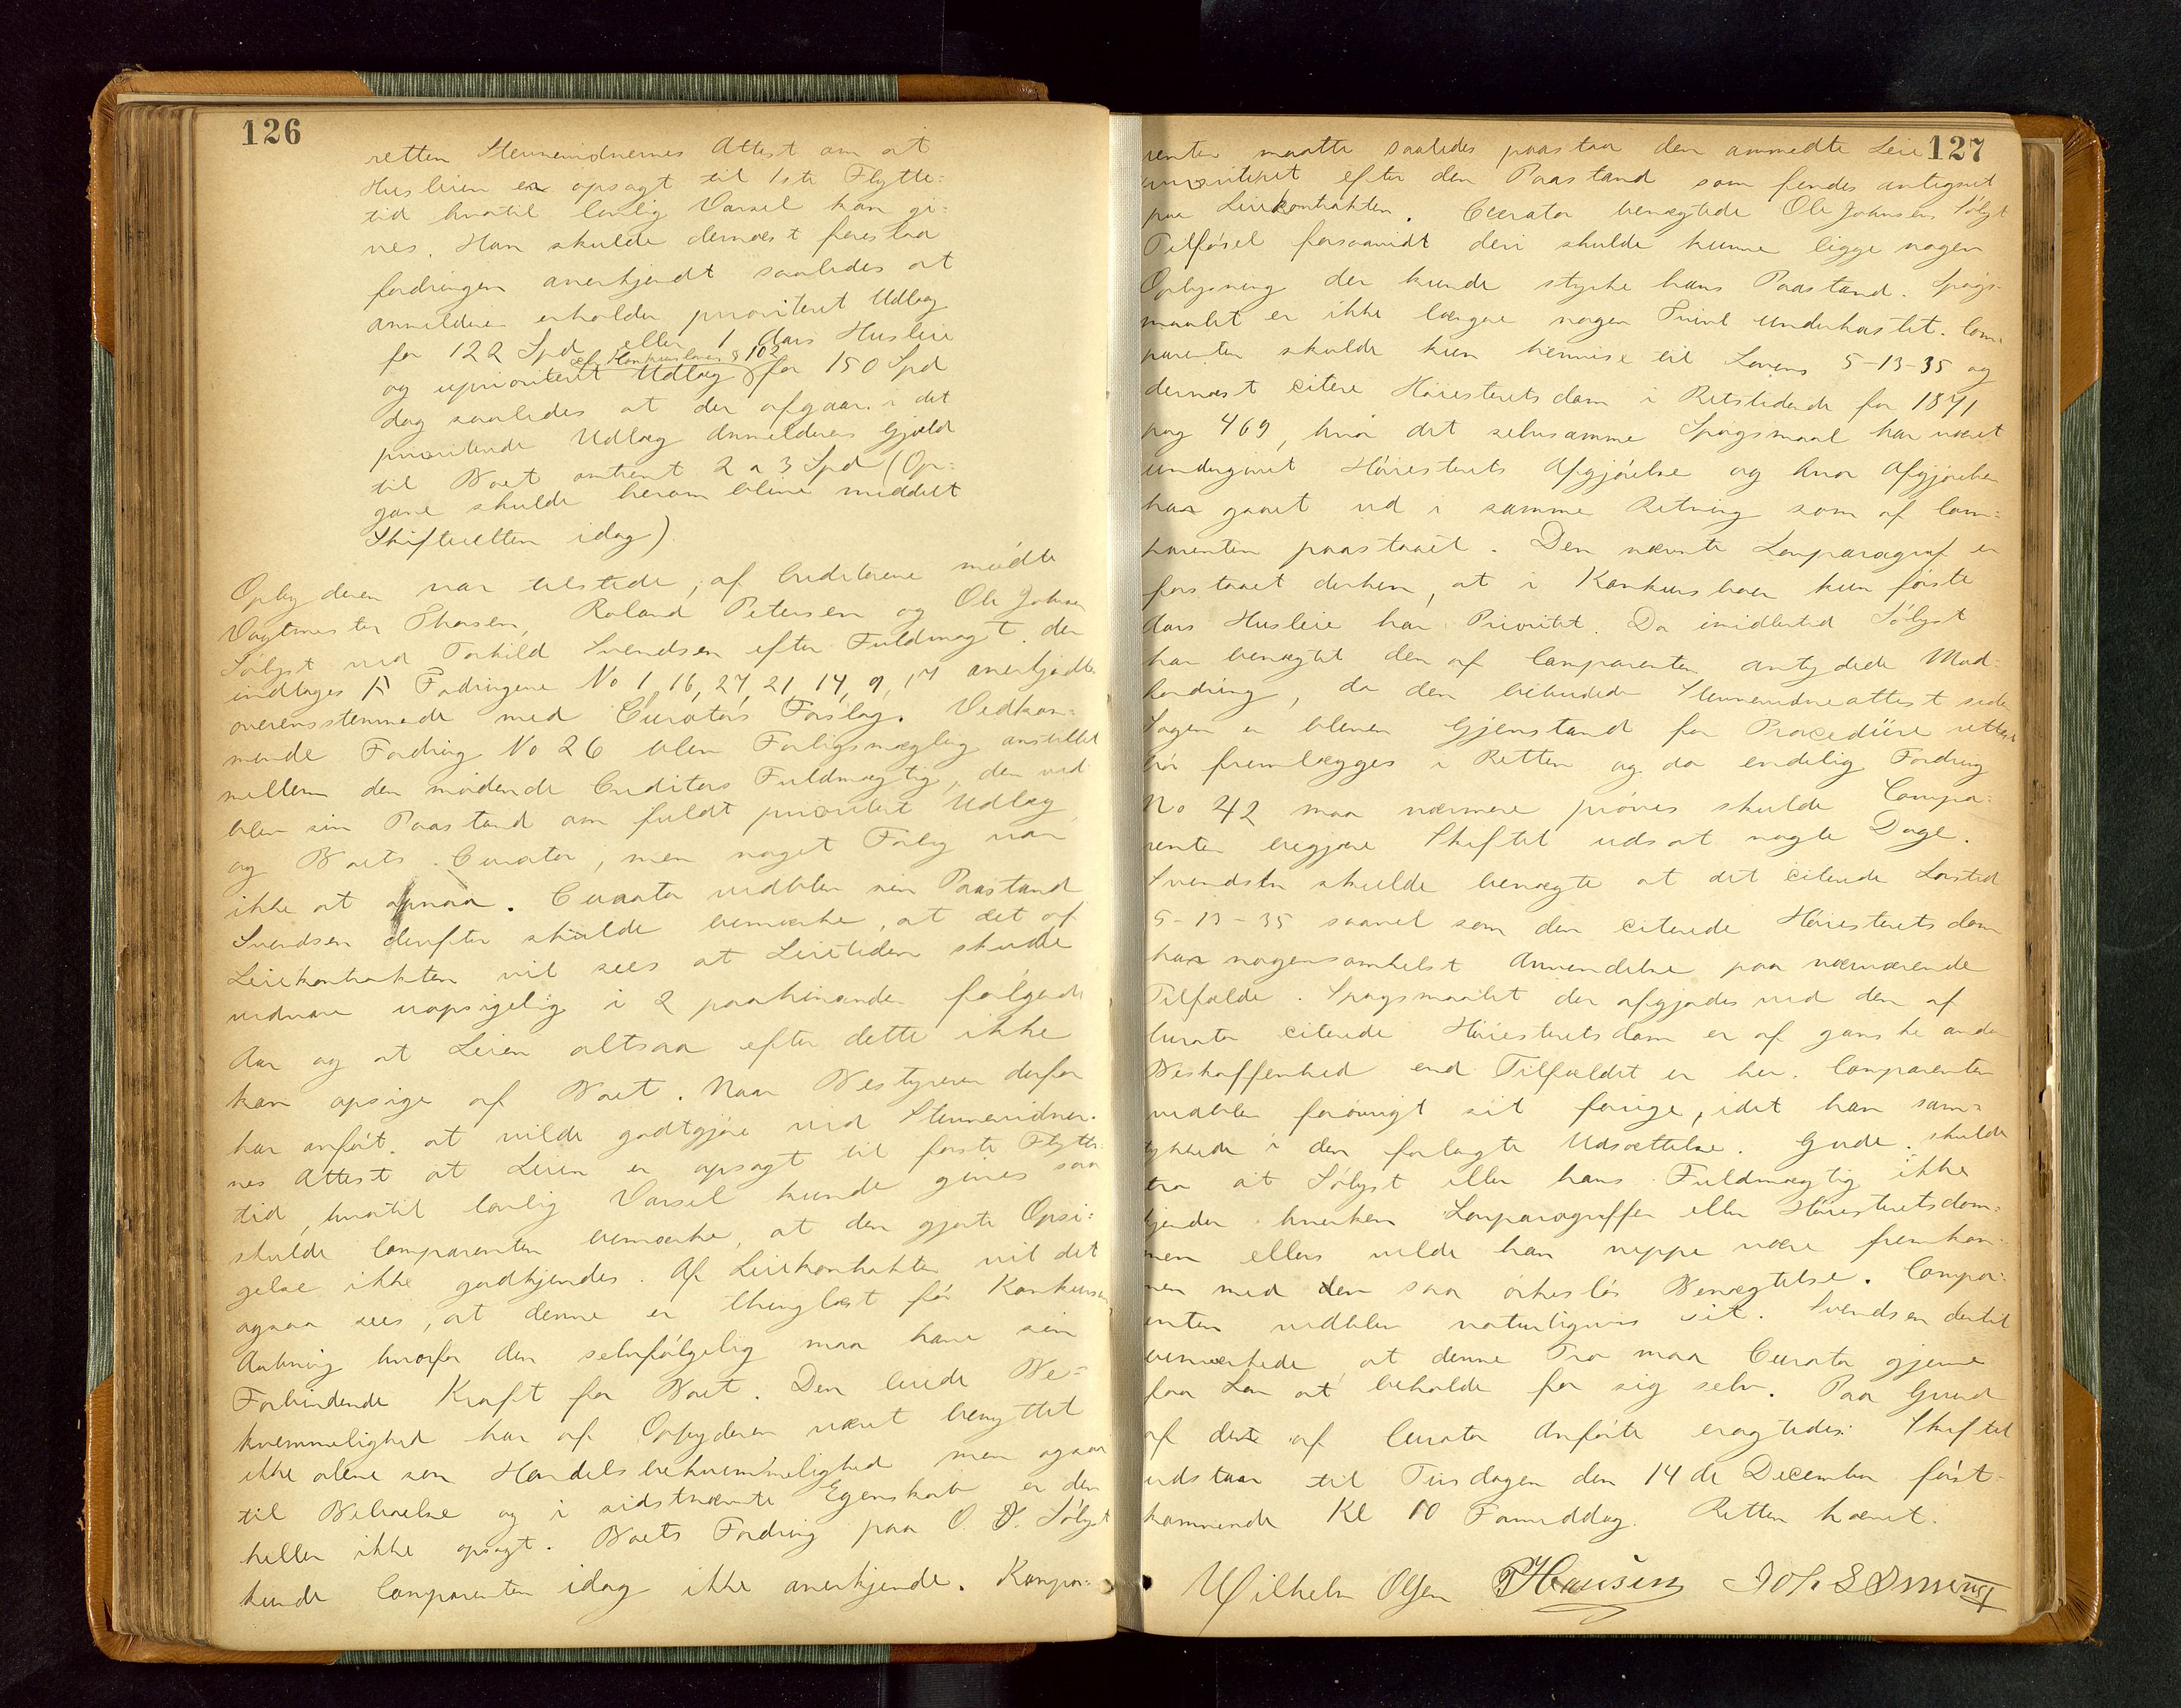 126
retten Stevnevidnernes Attest om at
Husleien er opsagt til 1ste Flytte-
tid hvortil lovlig Varsel kan gi-
ves. Han skulde dernæst foreslaa
fordringen anerkjendt saaledes at
anmelderen erholder prioriteret Udlæg
for 122 Spd eller 1 Aars Husleie
ef Konkurslovens § 102
og uprioriteret Udlæg for 150 Spd
dog saaledes at der afgaar i det
prioriterede Udlæg Anmelderens Gjæld
til Boet omtrent 2 a 3 Spd (Op-
gave skulde herom blive meddelt
Skifteretten idag).
Opbyderen var tilstede, af Creditorene mødte
Vagtmester Thorsen, Roland Petersen og Ole Johnsen
Sølyst ved Torkild Svendsen efter Fuldmagt der
indtages Fordringene No 1, 16, 27, 21, 14, 9, 17 anerkjendte
overensstemmende med Curators Forslag. Vedkom-
mende Fordring No 26 blev Forligsmægling anstillet
mellem den mødende Creditors Fuldmægtig, der ved
blev sin Paastand om fuldt prioriteret Udlæg,
og Boets Curator, men noget Forlig var
ikke at opnaa. Curator vedblev sin Paastand
Svendsen derefter skulde bemærke, at det af
Leiekontrakten vil sees at Leietiden skulde
vedvare uopsigelig i 2 paahinanden følgende
Aar og at Leien altsaa efter dette ikke
kan opsiges af Boet. Naar Bestyreren derfor
har anført at vilde godtgjøre ved Stevnevidner-
nes Attest at Leien er opsagt til første Flytte-
tid, hvortil lovlig Varsel kunde gives saa
skulde Comparenten bemærke, at den gjorte Opsi-
gelse ikke godkjendes. Af Leiekontrakten vil det
ogsaa sees, at denne er thinglæst før Konkursens
Aabning hvorfor den selvfølgelig maa have sin
Forbindende Kraft for Boet. Den leiede Be-
kvemmelighed har af Opbyderen været benyttet
ikke alene som Handelsbekvemmelighed men ogsaa
til Beboelse og i sidstnævnte Egenskab er den
heller ikke opsagt. Boets Fordring paa O. J. Sølyst
kunde Comparenten idag ikke anerkjende. Kompa-
127
renten maatte saaledes paastaa den anmeldte Leie
prioriteret efter den Paastand som findes antegnet
paa Leiekontrakten. Curator benægtede Ole Johnsen Sølyst
Tilførsel forsaavidt deri skulde kunne ligge nogen
Oplysning der kunde styrke hans Paastand. Spørgs-
maalet er ikke længere nogen Tvivl underkastet. Com-
parenten skulde kun henvise til Lovens 5-13-35 og
dernæst citere Høiesterets dom i Retstidende for 1871
pag 469, hvor det selvsamme Spørgsmaal har været
undergivet Høiesterets Afgjørelse og hvor Afgjørelsen
har gaaet ud i samme Retning som af Com-
parenten paastaaet. Den nævnte Lovparagraf er
forstaaet derhen, at i Konkursboer kun første
Aars Husleie har Prioritet. Da imidlertid Sølyst
har benægtet den af Comparenten antydede Mod-
fordring, da den bebudede Stevnevidneattest siden
Sagen er bleven Gjenstand for Procedüre rettest
bør fremlægges i Retten og da endelig Fordring
No 42 maa nærmere prøves skulde Compa-
renten begjære Skiftet udsat nogle Dage.
Svendsen skulde benægte at det citerede Lovsted
5-13-35 saavel som den citerede Høiesterets dom
har nogensomhelst Anvendelse paa nærværende
Tilfælde. Spørgsmaalet der afgjordes ved den af
Curator citerede Høiesterets dom er af ganske anden
Beskaffenhed end Tilfældet er her. Comparenten
vedblev forøvrigt sit forrige, idet han sam-
tykkede i den forlangte Udsættelse. Gude skulde
tro at Sølyst eller hans Fuldmægtig ikke
kjender hverken Lovparagraffen eller Høiesteretsdom-
men ellers vilde han neppe være fremkom-
men med den saa ørkesløs Benægtelse. Compa-
renten vedblev naturligvis sit. Svendsen dertil
bemærkede at denne Tro maa Curator gjerne
faa Lov at beholde for sig selv. Paa Grund
af det af Curator Anførte eragtedes: Skiftet
udstaar til Tirsdagen den 14de December først-
kommende Kl 10 Formiddag. Retten hævet.
Wilhelm Olsen PHansen